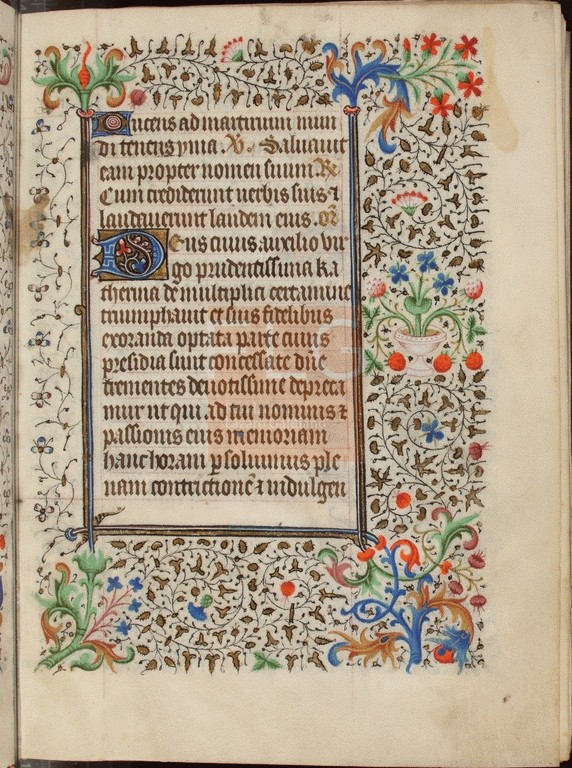 Ducens ad martirium mun
di tenens ymia. V. Saluauit
eam propter nomen suum. R
Cum crediderunt uerbis suis ⁊
laudauerunt laudem eius. or
Deus cuius auxilio vir
go prudentissima ka
therina de multiplici certamine
triumphauit et suis fidelibus
exoranda optata parte cuius
presidia sunt concessa te due
trementes deuotissime depreca
mur ut qui ad tui nominis ⁊
passionis eius memoriam
hanc horam psoluimus ple
nam contrictionē ⁊ indulgen